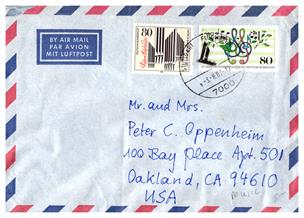 BY AIR MAIL
PAR AVION
MIT LUFTPOST
80
80
7000
Mr. and Mrs.
Peter C. Oppenheim
100 Bay Place Apt. 501
Oakland, CA 94610
USA
music